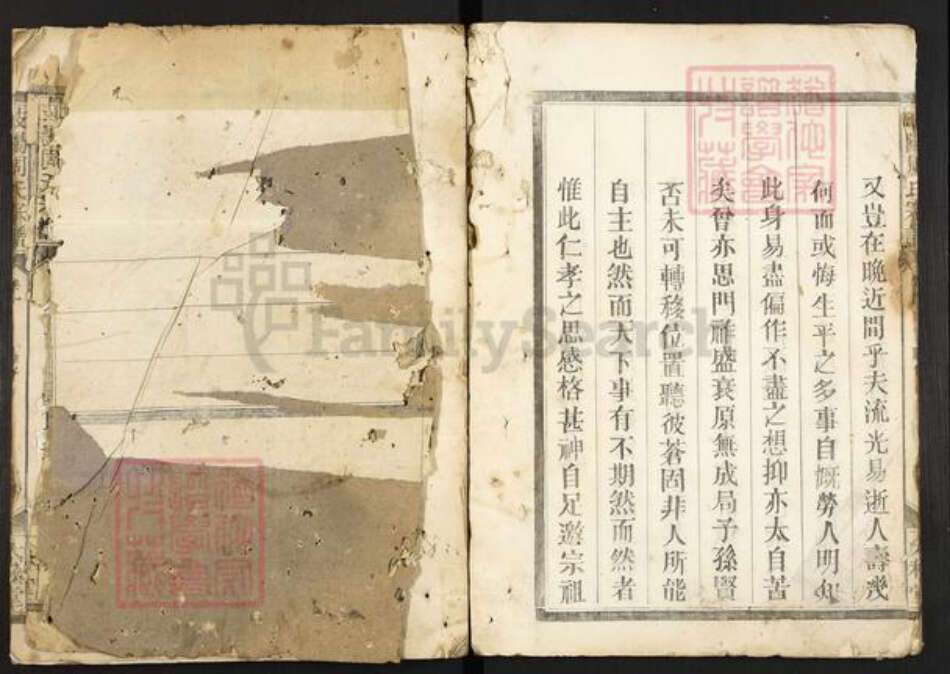 又豈在晩近間乎夫流光易逝人壽幾
何而或悔生平之多事自慨勞人明知
此身易盡偏作不盡之想抑亦太自苦
矣晉亦思門祚盛衰原無成局子孫賢
否未可轉移位置聽彼蒼固非人所能
自主也然而天下事有不期然而然者
惟此仁孝之思感格甚神自足邀宗祖
FamilySearch